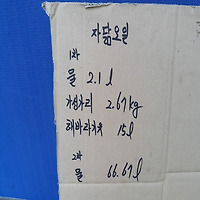 자닮오일
1차
물 2.1 l
가성가리 2.67kg
해바라기유 15l
2차
물 66.67l